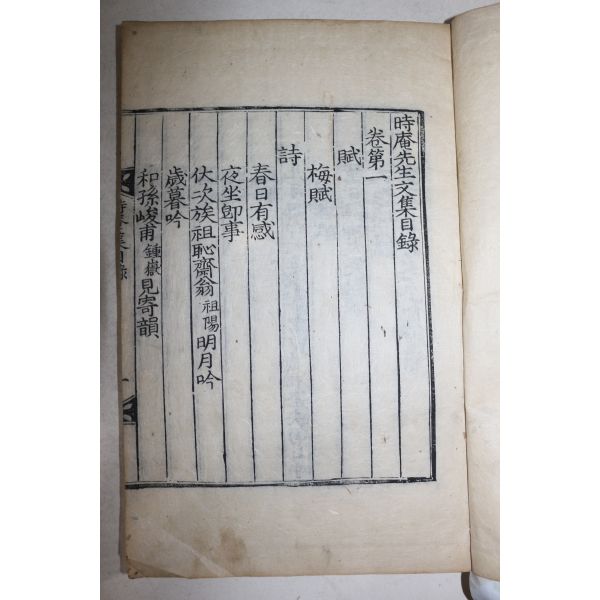 時庵先生文集目錄
卷第一
賦
梅賦
詩
春日有感
夜坐即事
伏次族祖恥齋翁祖陽明月吟
歲暮吟
和孫峻甫鍾嶽見寄韻